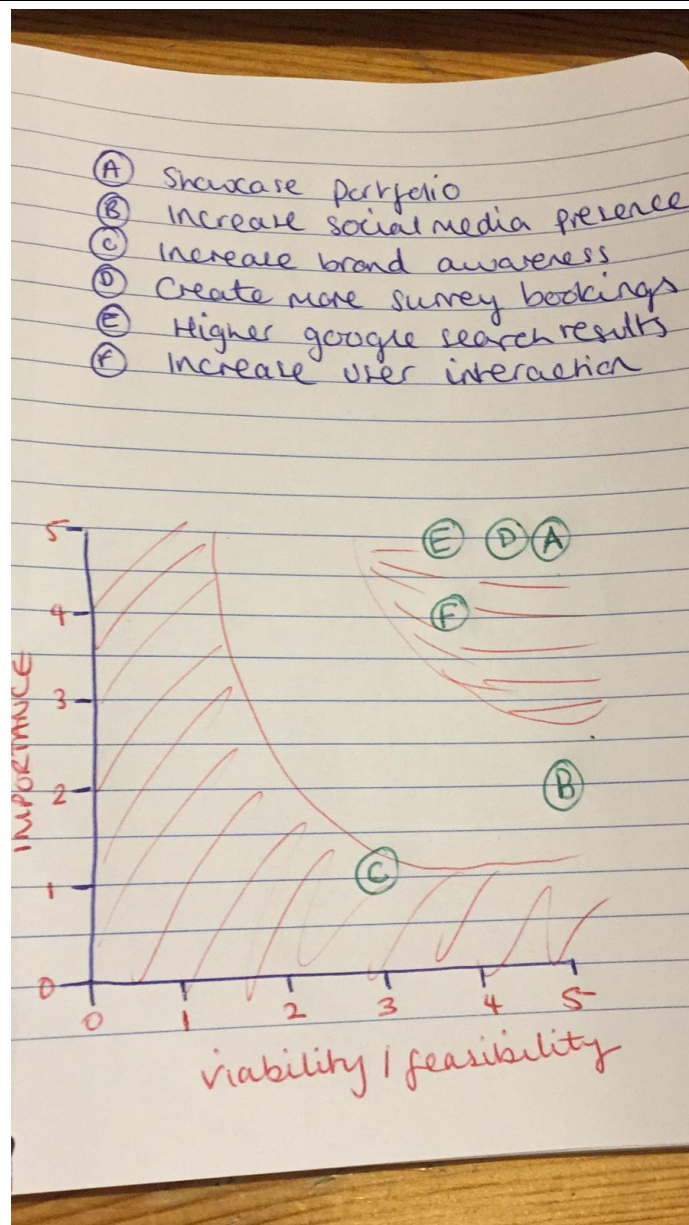 A Showcase Portfolio
B Increase social media presence
C Increase brand awareness
D Create more survey bookings
E Higher google search results
F Increase user interaction
5
E D A
4
F
3
IMPORTANCE
2
B
C
1
0
0 1 2 3 4 5
viability / feasibility